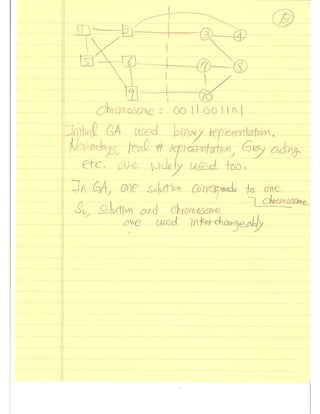 B
1 2 3 4
5 6 7 8
9 10
chromosome : 0011001101
Initial GA used binary representation.
Nowadays, real # representation, Gray coding
etc. are widely used too.
In GA, one solution corresponds to one
chromosome
So, solution and chromosome
are used interchangeably